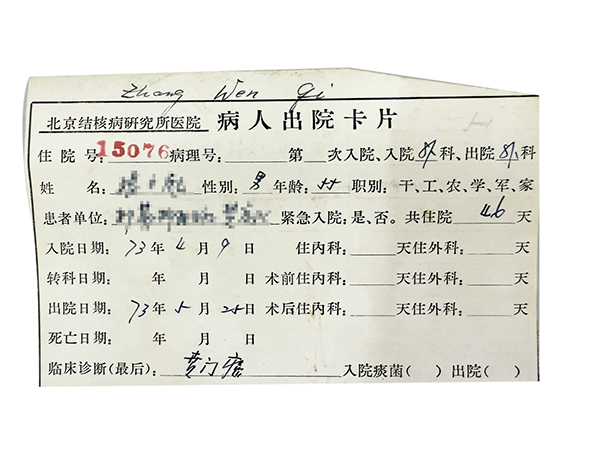 Zhang Wen Qi
北京结核病研究所医院 病人出院卡片
住院号:15076 病理号: 第 次入院、入院外科、出院外科
姓 名: 性别:男 年龄:55 职别:干、工、农、学、军、家
患者单位: 紧急入院:是、否。共住院 46 天
入院日期:73年4月9日 住内科: 天住外科: 天
转科日期: 年 月 日 术前住内科: 天住外科: 天
出院日期:73年5月25日 术后住内科: 天住外科: 天
死亡日期: 年 月 日
临床诊断(最后): 贲门癌 入院痰菌( ) 出院( )